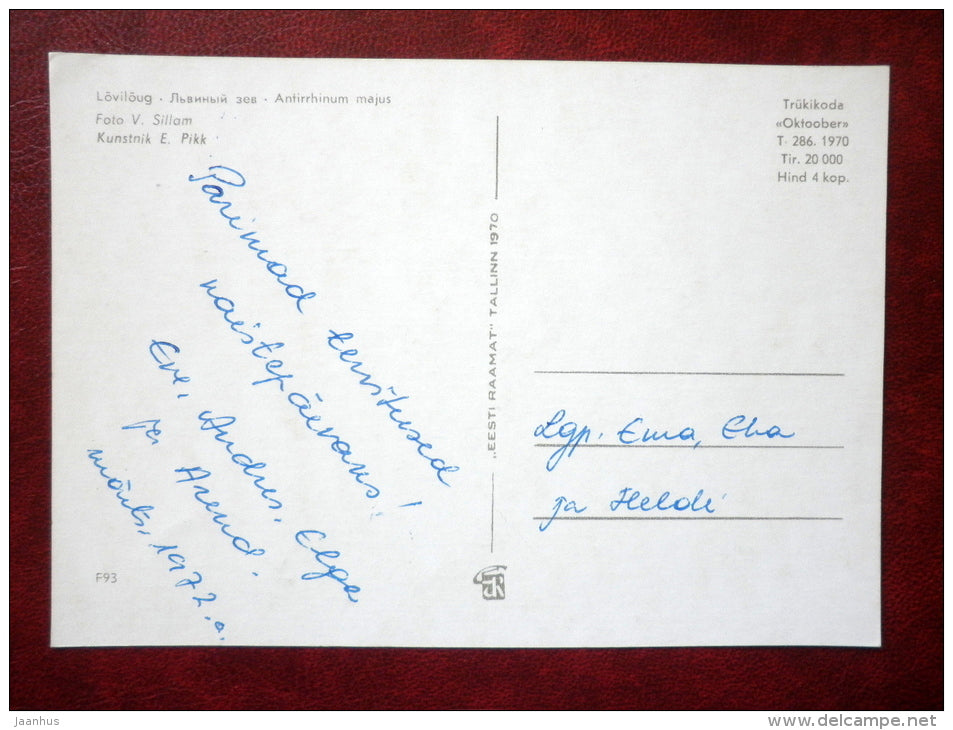 Lõvilõug · Львиный зев · Antirrhinum majus
Foto V. Sillam
Kunstnik E. Pikk
Trükikoda
«Oktoober»
T. 286. 1970
Tir. 20 000
Hind 4 kop.
Parimad tervitused
naistepäevaks!
Eve, Andres, Elga
ja Arend.
märts, 1972.a.
F93
„EESTI RAAMAT" TALLINN 1970
Lgp. Ema, Eha
ja Heldi
jaanhus
www.delcampe.net